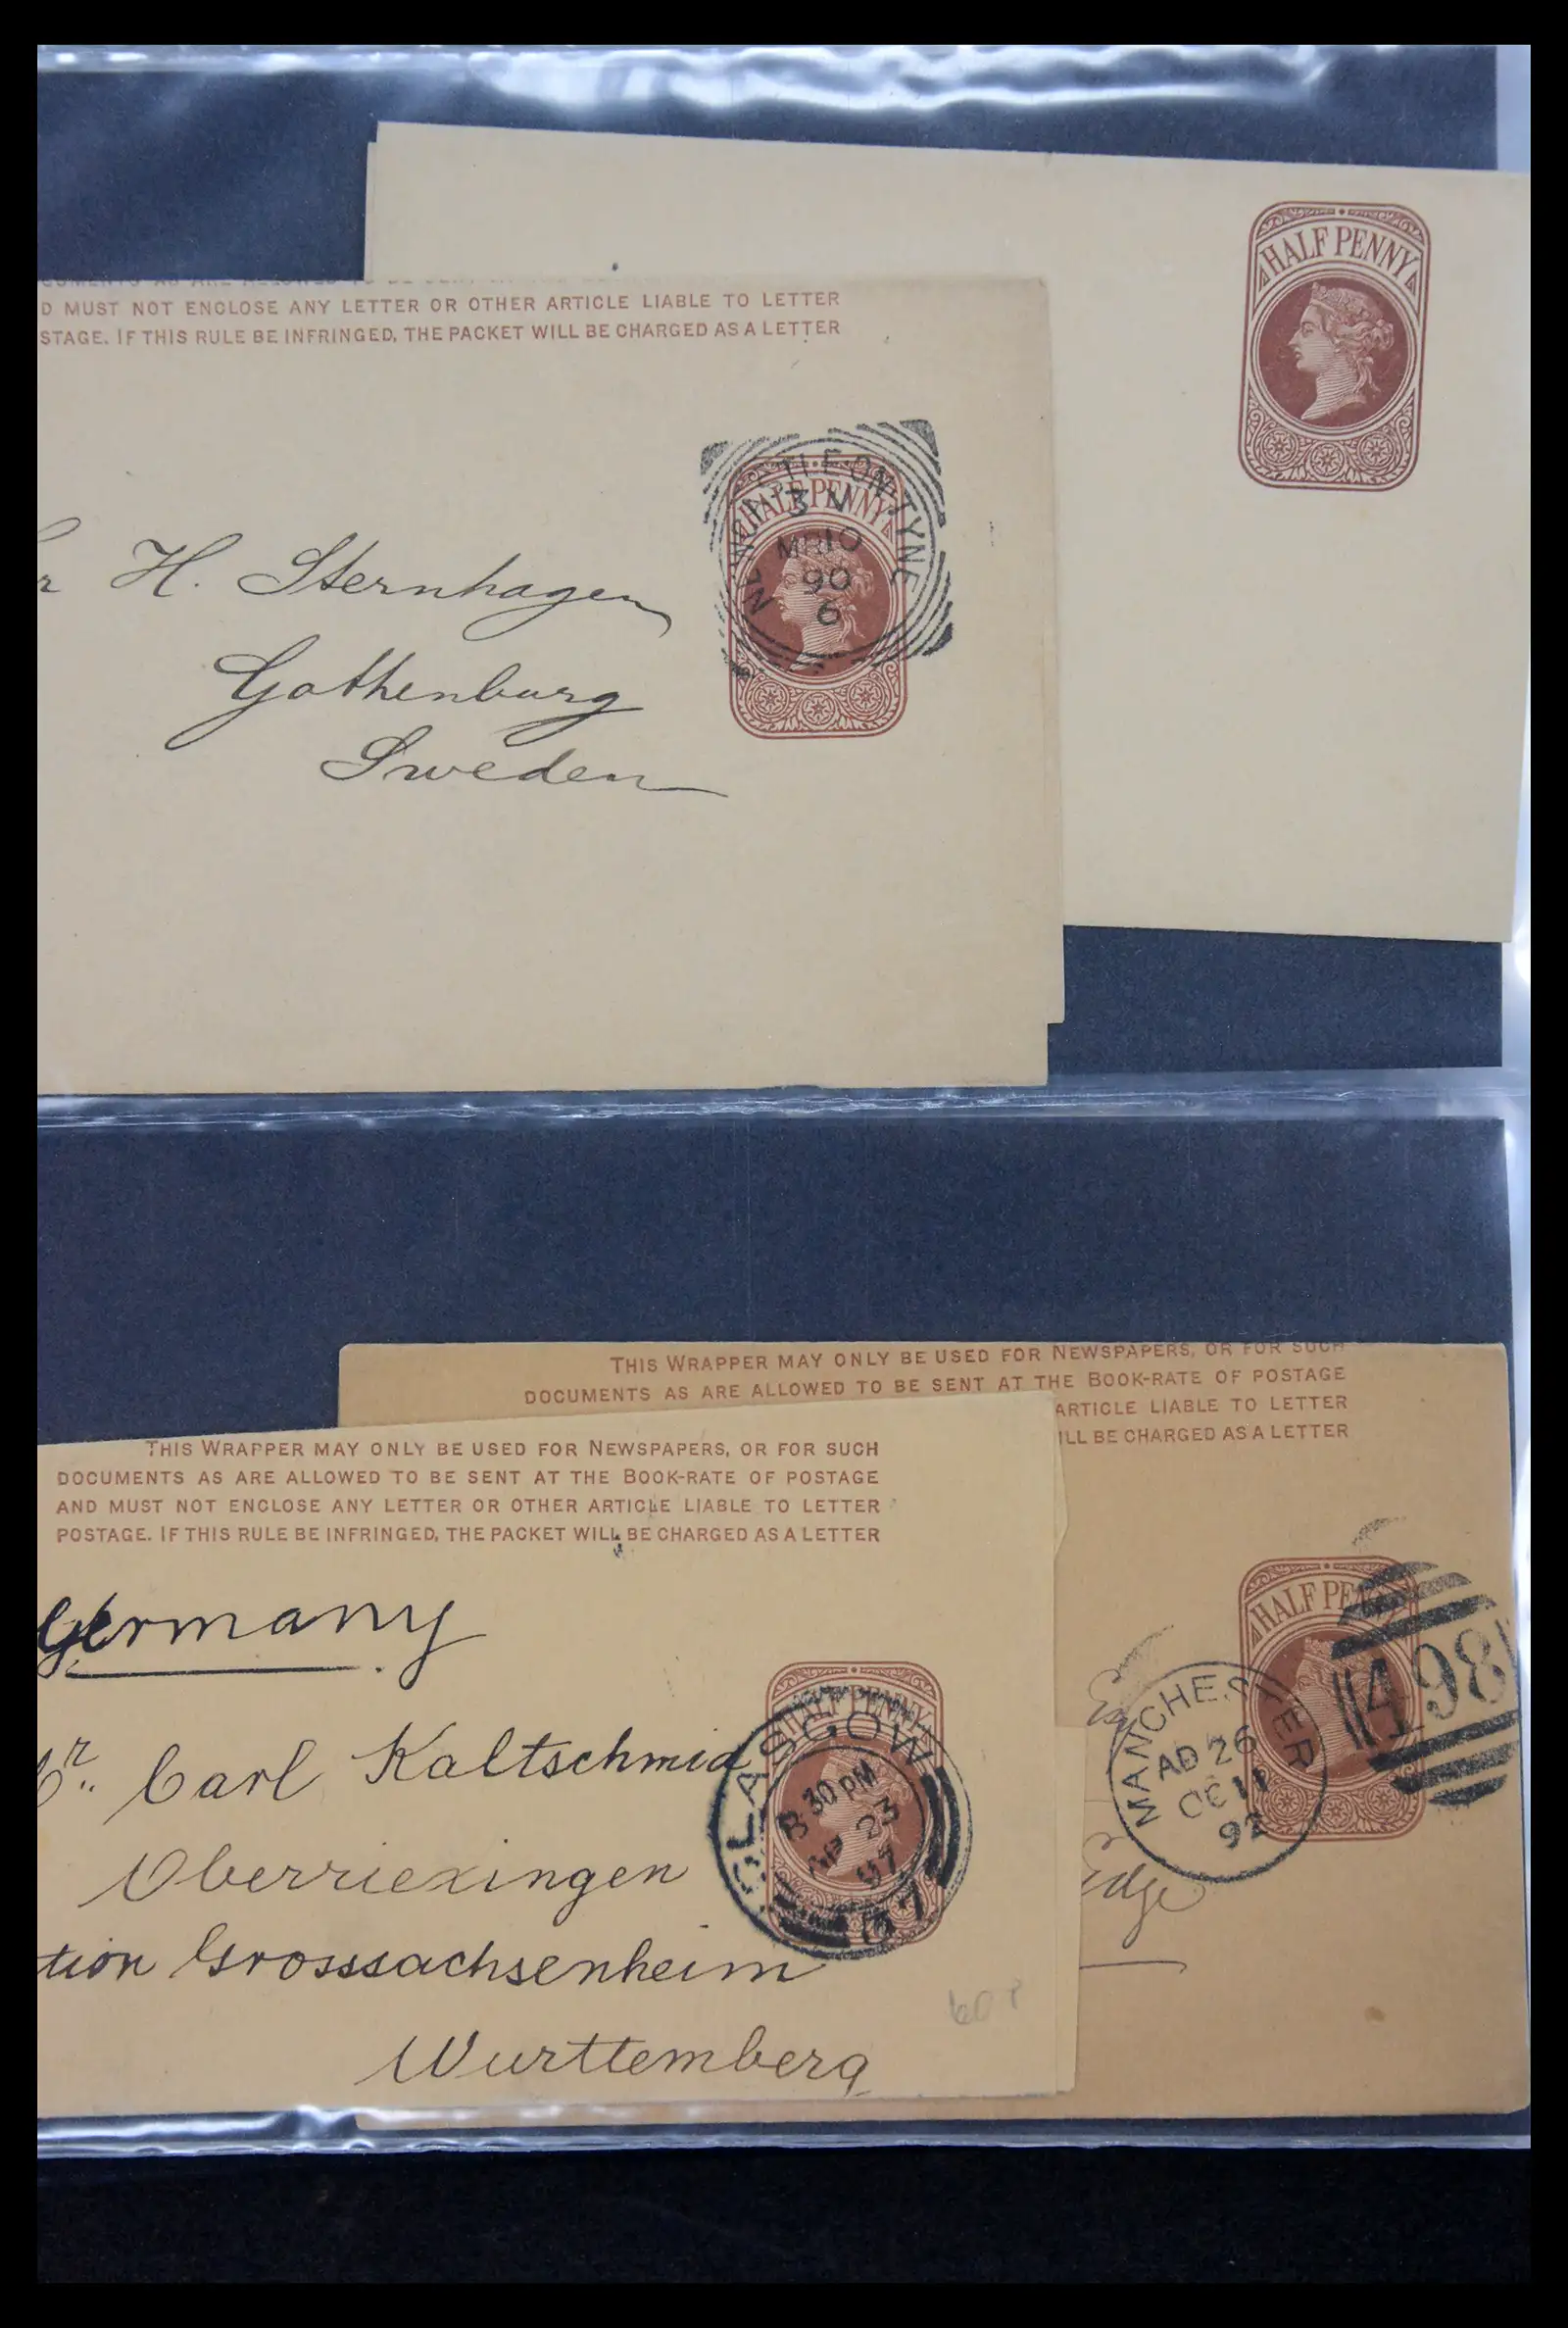 HALF PENNY
D MUST NOT ENCLOSE ANY LETTER OR OTHER ARTICLE LIABLE TO LETTER
STAGE. IF THIS RULE BE INFRINGED, THE PACKET WILL BE CHARGED AS A LETTER
HALF PENNY
NEWCASTLE ON TYNE
MR 10
90
6
r H. Sternhagen
Gothenburg
Sweden
THIS WRAPPER MAY ONLY BE USED FOR NEWSPAPERS, OR FOR SUCH
DOCUMENTS AS ARE ALLOWED TO BE SENT AT THE BOOK-RATE OF POSTAGE
ARTICLE LIABLE TO LETTER
ILL BE CHARGED AS A LETTER
HALF PENNY
498
MANCHESTER
AD 26
OC 11
92
edge
THIS WRAPPER MAY ONLY BE USED FOR NEWSPAPERS, OR FOR SUCH
DOCUMENTS AS ARE ALLOWED TO BE SENT AT THE BOOK-RATE OF POSTAGE
AND MUST NOT ENCLOSE ANY LETTER OR OTHER ARTICLE LIABLE TO LETTER
POSTAGE. IF THIS RULE BE INFRINGED, THE PACKET WILL BE CHARGED AS A LETTER
Germany
HALF PENNY
GLASGOW
8 30 PM
AP 23
97
Carl Kaltschmid
Oberriexingen
tion Grosssachsenheim
Wurttemberg